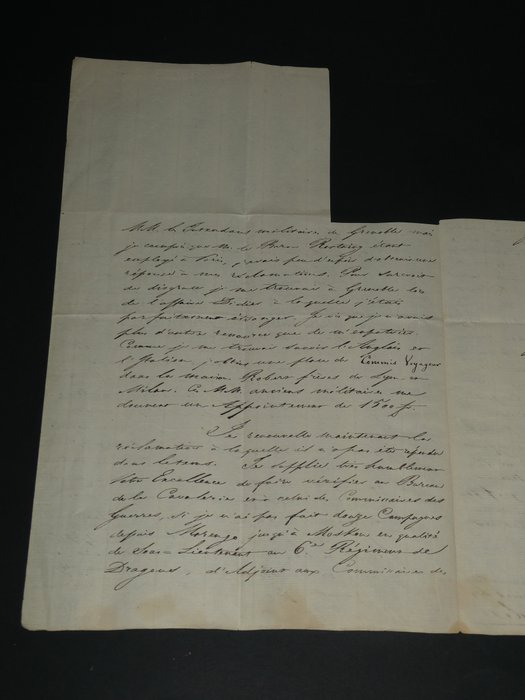 MM. les Intendans militaires de Grenoble mais
je compris que M. le Baron étant
employé à Paris, j'avais peu d'espoir d'obtenir une
réponse à mes réclamations. Pour surcroit
de disgrace je me trouvais à Grenoble lors
de l'affaire Didier à la quelle j'étais
parfaitement étranger. Je vis que je n'avais
plus d'autre ressource que de m'expatrier.
Comme je me trouvais savoir l'Anglais et
l'Italien j'obtins une place de Commis Voyageur
dans la maison Robert frères de Lyon et
Milan. Ces MM. anciens militaires me
donnent un Appointement de 1500 f.
Je renouvelle maintenant la
réclamation à la quelle il n'a pas été répondu
dans le tems. Je supplie très humblement
Votre Excellence de faire vérifier au Bureau
de la Cavalerie et à celui des Commissaires des
Guerres, si je n'ai pas fait douze Campagnes
depuis Marengo jusqu'à Moskou en qualité
de Sous-Lieutenant au 6e Régiment de
Dragons, d'Adjoint aux Commissaires des